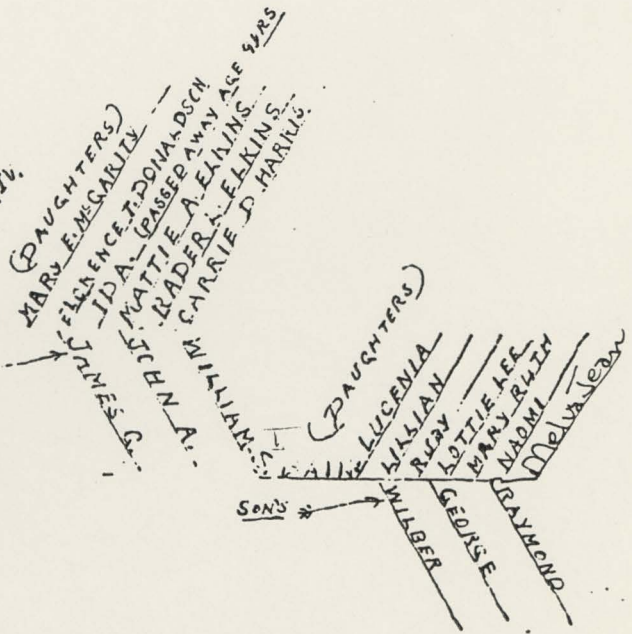 (DAUGHTERS)
MARY E. McGARITY
FLORENCE T. DONALDSON
IDA - (PASSED AWAY AGE YRS
MATTIE A. ELKINS
RADER L. ELKINS
CARRIE D. HARRIS
JAMES G.
JOHN A.
WILLIAM
(DAUGHTERS)
LUCENIA
LILLIAN
RUBY
LOTTIE LEE
MARY RUTH
NAOMI
Melva Jean
SON'S
WILBER
GEORGE
RAYMOND